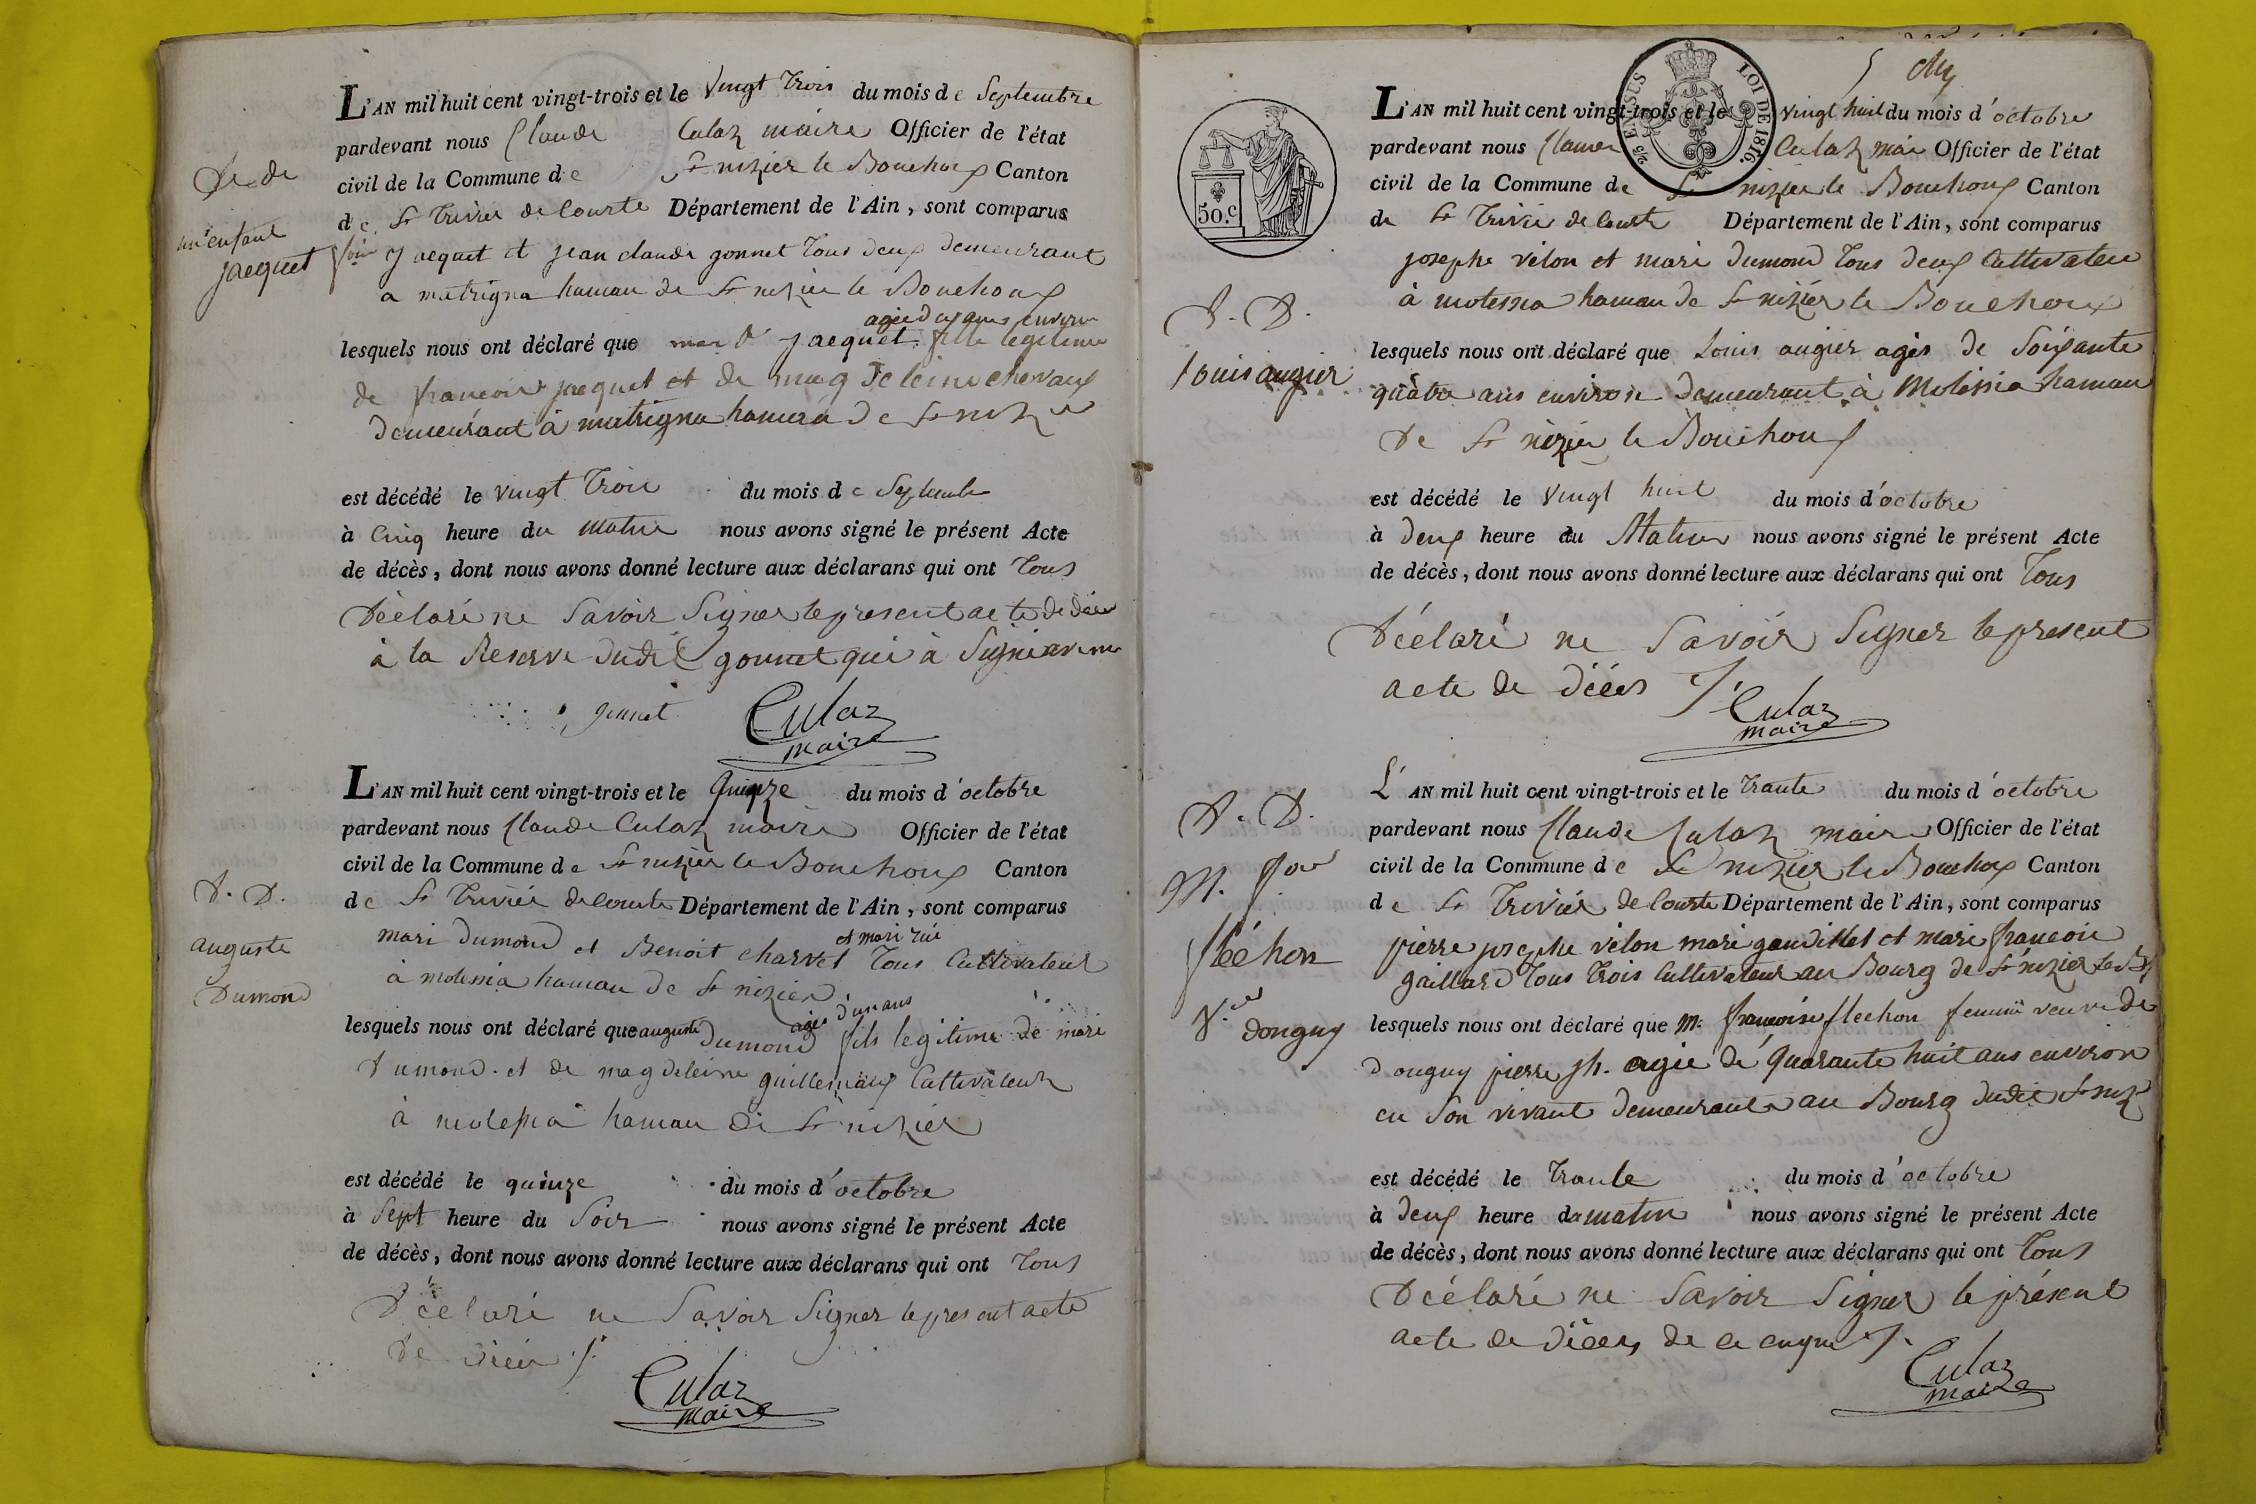 De de
un enfant
jacquet
L'AN mil huit cent vingt-trois et le vingt trois du mois de Septembre
pardevant nous Claude Culaz maire Officier de l'état
civil de la Commune de St nizier le Bouchoux Canton
de St Trivier de Courte Département de l'Ain, sont comparus
jacquet et jean claude gonnet tous deux demeurant
a matrigna hamau de St nizier le Bouchoux
lesquels nous ont déclaré que jacquet fille legitime
de francois jacquet et de chevaux
demeurant à matrigna hamau de St nizier
est décédé le vingt trois du mois de Septembre
à cinq heure du matin nous avons signé le présent Acte
de décès, dont nous avons donné lecture aux déclarans qui ont tous
Déclaré ne Savoir Signer le present acte de décès
à la Reserve dudit gonnet qui à Signé avec
gonnet Culaz
maire
A. D.
auguste
Dumond
L'AN mil huit cent vingt-trois et le quinze du mois d'octobre
pardevant nous Claude Culaz maire Officier de l'état
civil de la Commune de St nizier le Bouchoux Canton
de St Trivier de Courte Département de l'Ain, sont comparus
et mari
mari Dumond et Benoit charvet tous Cultivateur
à molessia hamau de St nizier
agés d'un ans
lesquels nous ont déclaré que auguste dumond fils legitime de mari
Dumond et de magdeleine guillemaux Cultivateur
à molessia hamau de St nizier
est décédé le quinze du mois d'octobre
à Sept heure du Soir nous avons signé le présent Acte
de décès, dont nous avons donné lecture aux déclarans qui ont tous
Déclaré ne Savoir Signer le present acte
de décès
Culaz
maire
25 EN SUS LOI DE 1816.
50. C
A. D.
Louis augier
L'AN mil huit cent vingt-trois et le vingt huit du mois d'octobre
pardevant nous Claude Culaz maire Officier de l'état
civil de la Commune de St nizier le Bouchoux Canton
de St Trivier de Courte Département de l'Ain, sont comparus
josephe vélon et mari dumond tous deux Cultivateur
à molessia hamau de St nizier le Bouchoux
lesquels nous ont déclaré que Louis augier agés de Soixante
quatre ans environ demeurant à Molessia hamau
de St nizier le Bouchoux
est décédé le vingt huit du mois d'octobre
à deux heure du Matin nous avons signé le présent Acte
de décès, dont nous avons donné lecture aux déclarans qui ont tous
Déclaré ne Savoir Signer le present
acte de décès
Culaz
maire
A. D.
M.
fléchon
Ve
donguy
L'AN mil huit cent vingt-trois et le trante du mois d'octobre
pardevant nous Claude Culaz maire Officier de l'état
civil de la Commune de St nizier le Bouchox Canton
de St Trivier de Courte Département de l'Ain, sont comparus
pierre josephe vélon mari gaudillet et mari francois
gaillard tous trois Cultivateur au Bourg de St nizier le B
lesquels nous ont déclaré que M. francoise flechon femme veuve de
donguy pierre jh. agée de quarante huit ans environ
en Son vivant demeurant au Bourg dudit St niz
est décédé le trante du mois d'octobre
à deux heure du matin nous avons signé le présent Acte
de décès, dont nous avons donné lecture aux déclarans qui ont tous
Déclaré ne Savoir Signer le présent
acte de décès de ce enquis
Culaz
maire